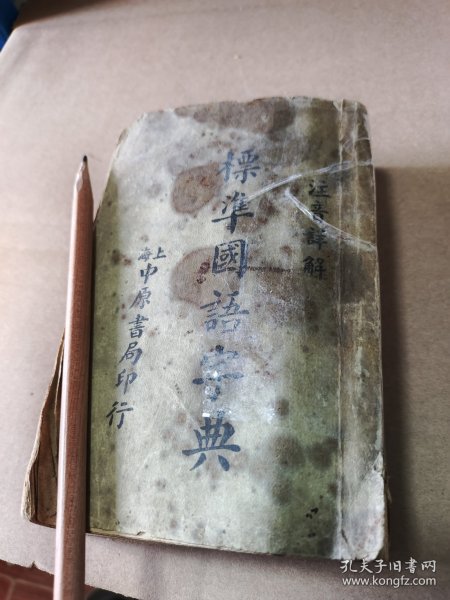 註音詳解
標準國語字典
上海
中原書局印行
孔夫子旧书网
www.kongfz.com